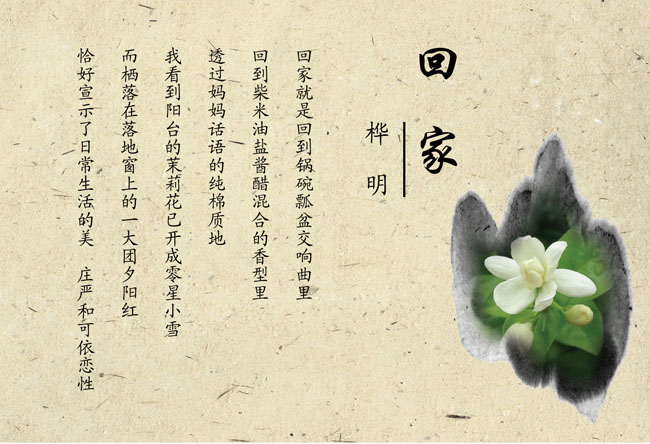 回家
桦明
回家就是回到锅碗瓢盆交响曲里
回到柴米油盐酱醋混合的香型里
透过妈妈话语的纯棉质地
我看到阳台的茉莉花已开成零星小雪
而栖落在落地窗上的一大团夕阳红
恰好宣示了日常生活的美　庄严和可依恋性